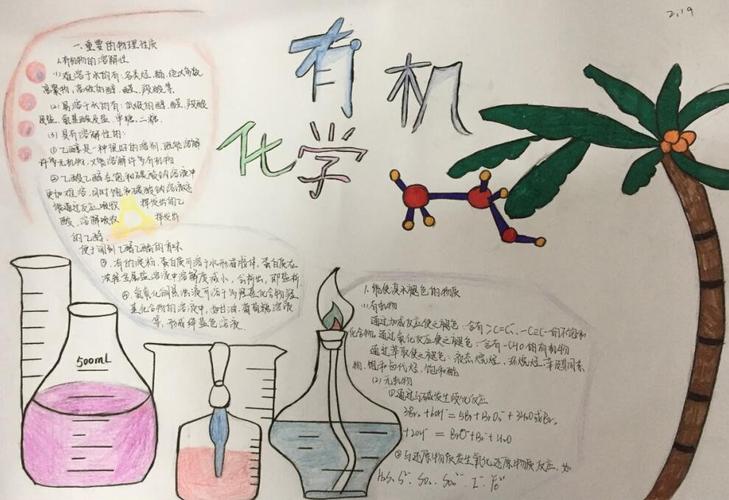 2.19
有机
化学
一.重要的物理性质
1.有机物的溶解性
(1)难溶于水的有:各类烃、酯、绝大多数
高聚物、高级的醇、醛、羧酸等
(2)易溶于水的有:低级的醇、醛、羧酸
盐、氨基酸及盐、单糖、二糖.
(3)具有溶解性的:
①乙醇是一种很好的溶剂,既能溶解
许多无机物,又能溶解许多有机物
②乙酸乙酯在饱和碳酸钠溶液中
更加难溶,同时饱和碳酸钠溶液还
能通过反应吸收 挥发出的乙
酸,溶解吸收 挥发出
的乙醇,
便于闻到乙酸乙酯的香味
③有的淀粉、蛋白质可溶于水形成胶体,蛋白质在
浓轻金属盐溶液中溶解度减小,会析出,即盐析
④氢氧化铜悬浊液可溶于多羟基化合物
化合物的溶液中,如甘油、葡萄糖溶液
等,形成绛蓝色溶液.
500mL
1.能使溴水褪色的物质
(1)有机物
通过加成反应使之褪色:含有>C=C<、-C≡C-的不饱和
化合物.通过氧化反应使之褪色:含有-CHO的有机物
通过萃取使之褪色:液态烷烃、环烷烃、苯及其同系
物、饱和卤代烃、饱和酯
(2)无机物
①通过与碱发生歧化反应
3Br₂+6OH⁻=5Br⁻+BrO₃⁻+3H₂O或Br₂
+2OH⁻=BrO⁻+Br⁻+H₂O
②与还原物质发生氧化还原反应,如
H₂S、S²⁻、SO₂、SO₃²⁻、I⁻、Fe²⁺